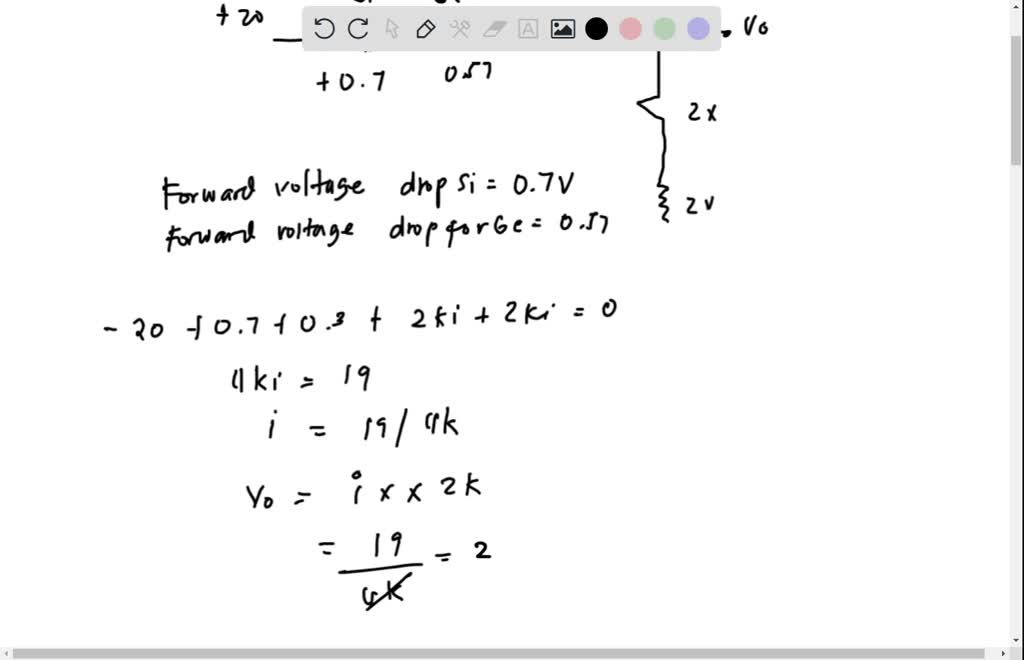 +20 . Vo
+0.7 0.57
2x
Forward voltage drop Si = 0.7V
2V
Forward voltage drop for Ge = 0.57
- 20 + 0.7 + 0.3 + 2ki + 2ki = 0
4ki = 19
i = 19/4k
Vo = i x x 2k
= 19 = 2
4k